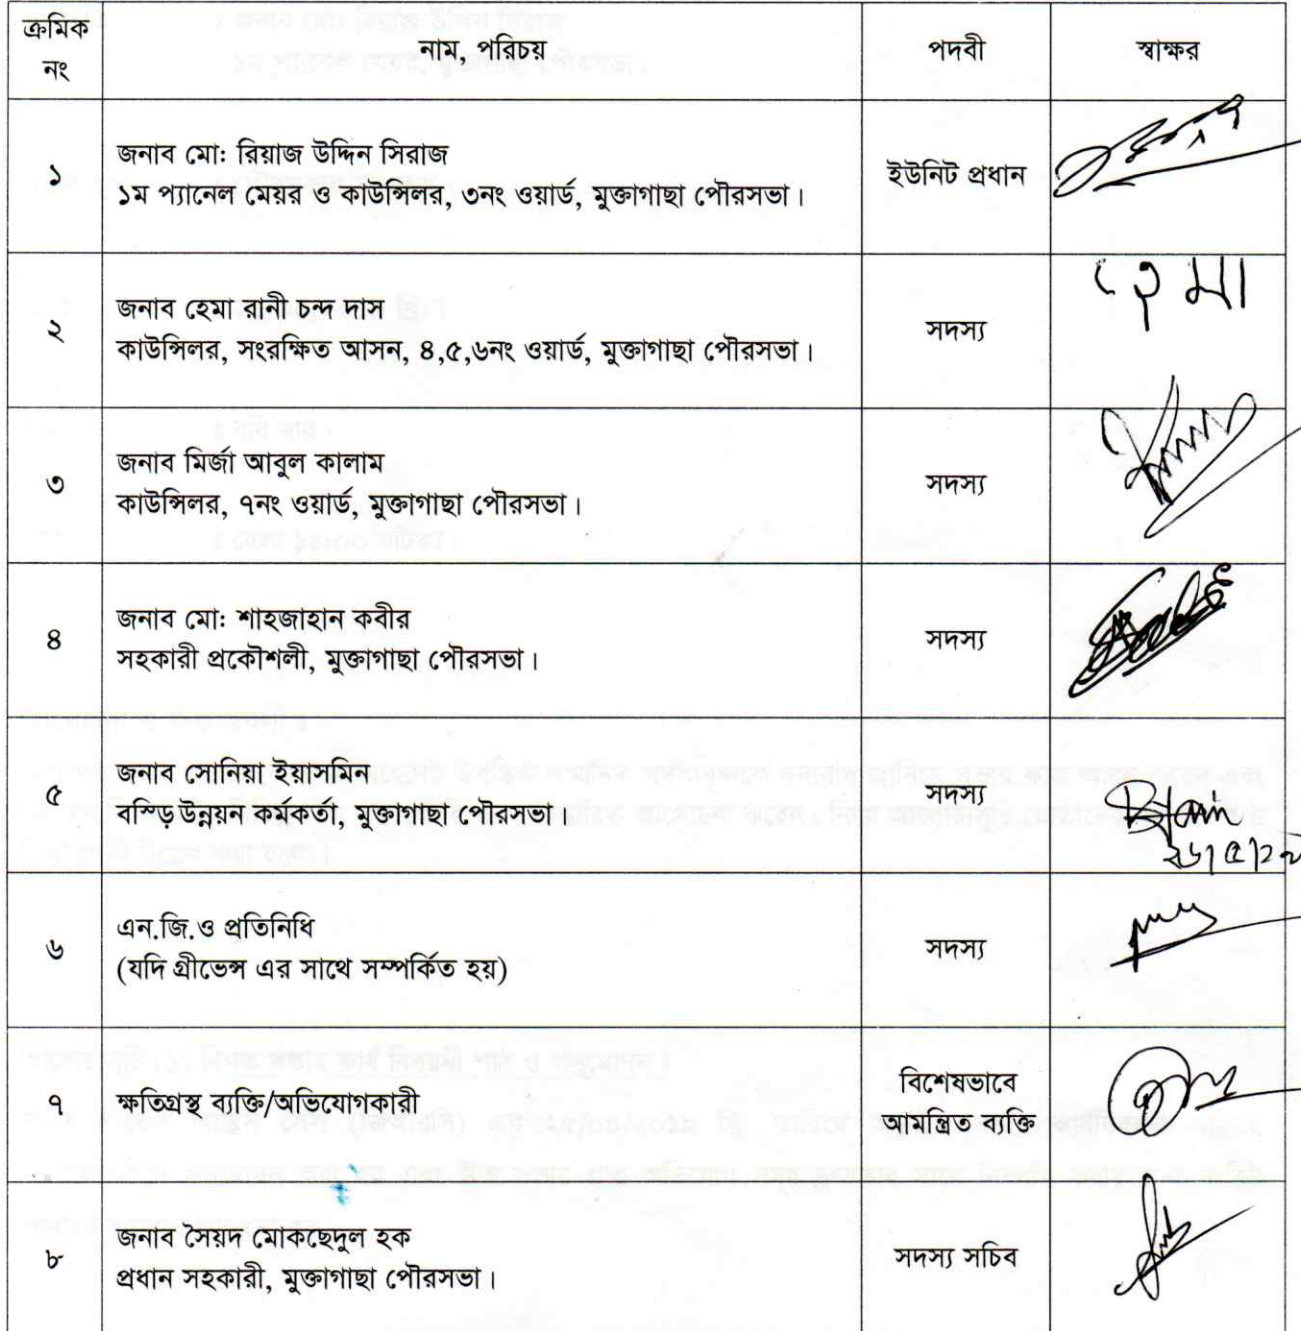 ক্রমিক নং নাম, পরিচয় পদবী স্বাক্ষর
১ জনাব মো: রিয়াজ উদ্দিন সিরাজ
১ম প্যানেল মেয়র ও কাউন্সিলর, ৩নং ওয়ার্ড, মুক্তাগাছা পৌরসভা। ইউনিট প্রধান
২ জনাব হেমা রানী চন্দ দাস
কাউন্সিলর, সংরক্ষিত আসন, ৪,৫,৬নং ওয়ার্ড, মুক্তাগাছা পৌরসভা। সদস্য হেমা
৩ জনাব মির্জা আবুল কালাম
কাউন্সিলর, ৭নং ওয়ার্ড, মুক্তাগাছা পৌরসভা। সদস্য
৪ জনাব মো: শাহজাহান কবীর
সহকারী প্রকৌশলী, মুক্তাগাছা পৌরসভা। সদস্য
৫ জনাব সোনিয়া ইয়াসমিন
বস্তি উন্নয়ন কর্মকর্তা, মুক্তাগাছা পৌরসভা। সদস্য
৬ এন.জি.ও প্রতিনিধি
(যদি গ্রীভেন্স এর সাথে সম্পর্কিত হয়) সদস্য
৭ ক্ষতিগ্রস্থ ব্যক্তি/অভিযোগকারী বিশেষভাবে
আমন্ত্রিত ব্যক্তি
৮ জনাব সৈয়দ মোকছেদুল হক
প্রধান সহকারী, মুক্তাগাছা পৌরসভা। সদস্য সচিব